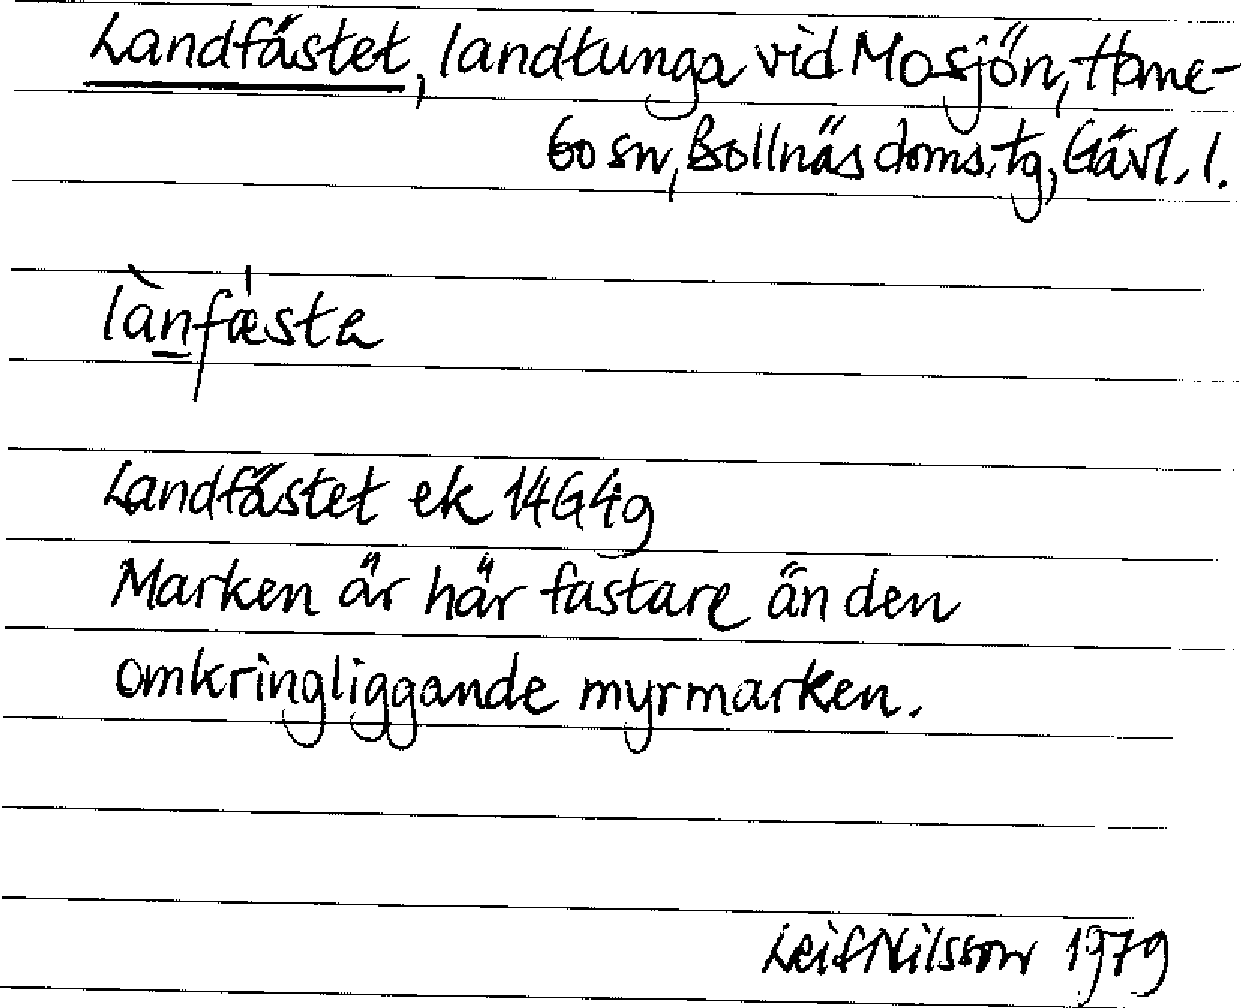 Landfästet, landtunga vid Mosjön, Hane-
bo sn, Bollnäs doms.tg, Gävl. l.
lànfæ̍sta
Landfästet ek 14G4g
Marken är här fastare än den
omkringliggande myrmarken.
Leif Nilsson 1979